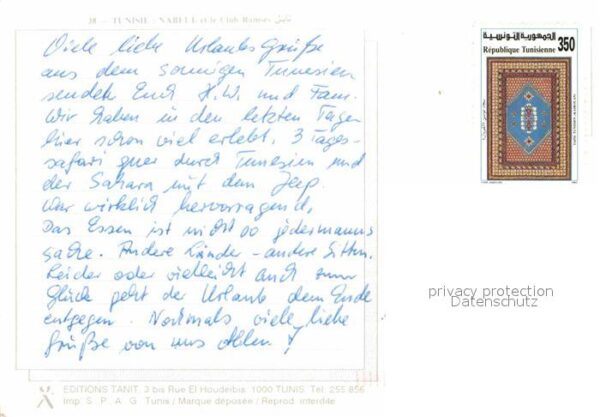 38 — TUNISIE - NABEUL et le Club Ramses نابل
Viele liebe Urlaubsgrüße
aus dem sonnigen Tunesien
sendet Euch H.W. und Fam.
Wir haben in den letzten Tagen
hier schon viel erlebt. 3 Tages-
safari quer durch Tunesien und
der Sahara mit dem Jeep.
War wirklich hervorragend.
Das Essen ist nicht so jedermanns
sache. Andere Länder - andere Sitten.
Leider oder vielleicht auch zum
Glück geht der Urlaub dem Ende
entgegen. Nochmals viele liebe
Grüße von uns Allen!
EDITIONS TANIT. 3 bis Rue El Houdeibia. 1000 TUNIS. Tél. 255.856
Imp. S. P. A. G. Tunis / Marque déposée / Reprod. interdite
الجمهورية التونسية
République Tunisienne 350
privacy protection
Datenschutz